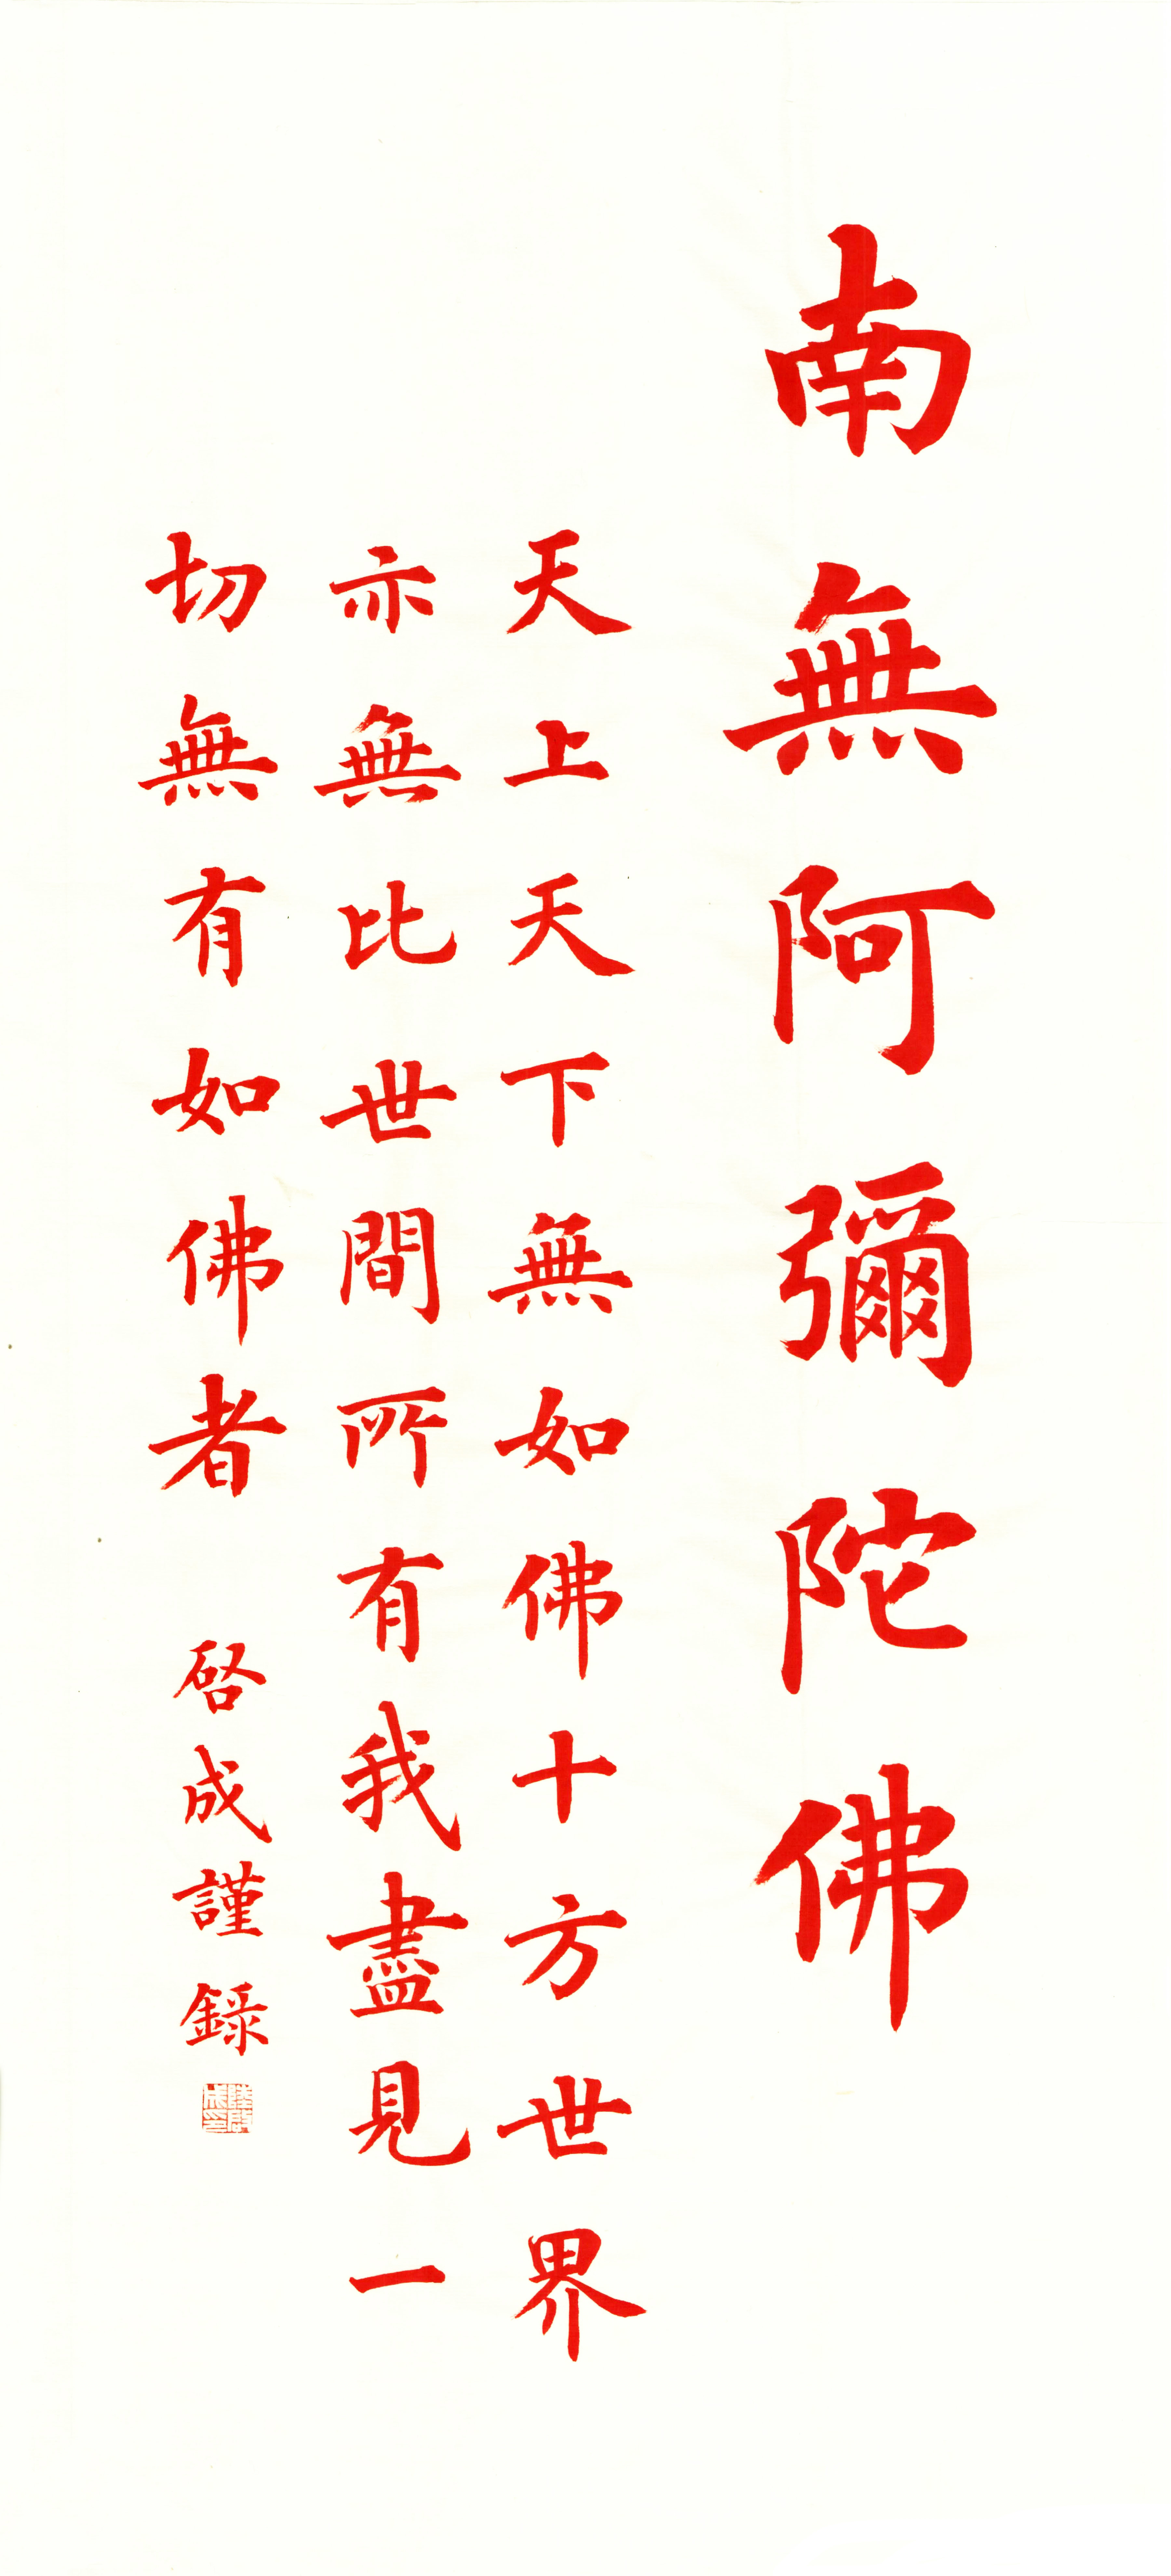 南無阿彌陀佛
天上天下無如佛十方世界
亦無比世間所有我盡見一
切無有如佛者
啓成謹錄